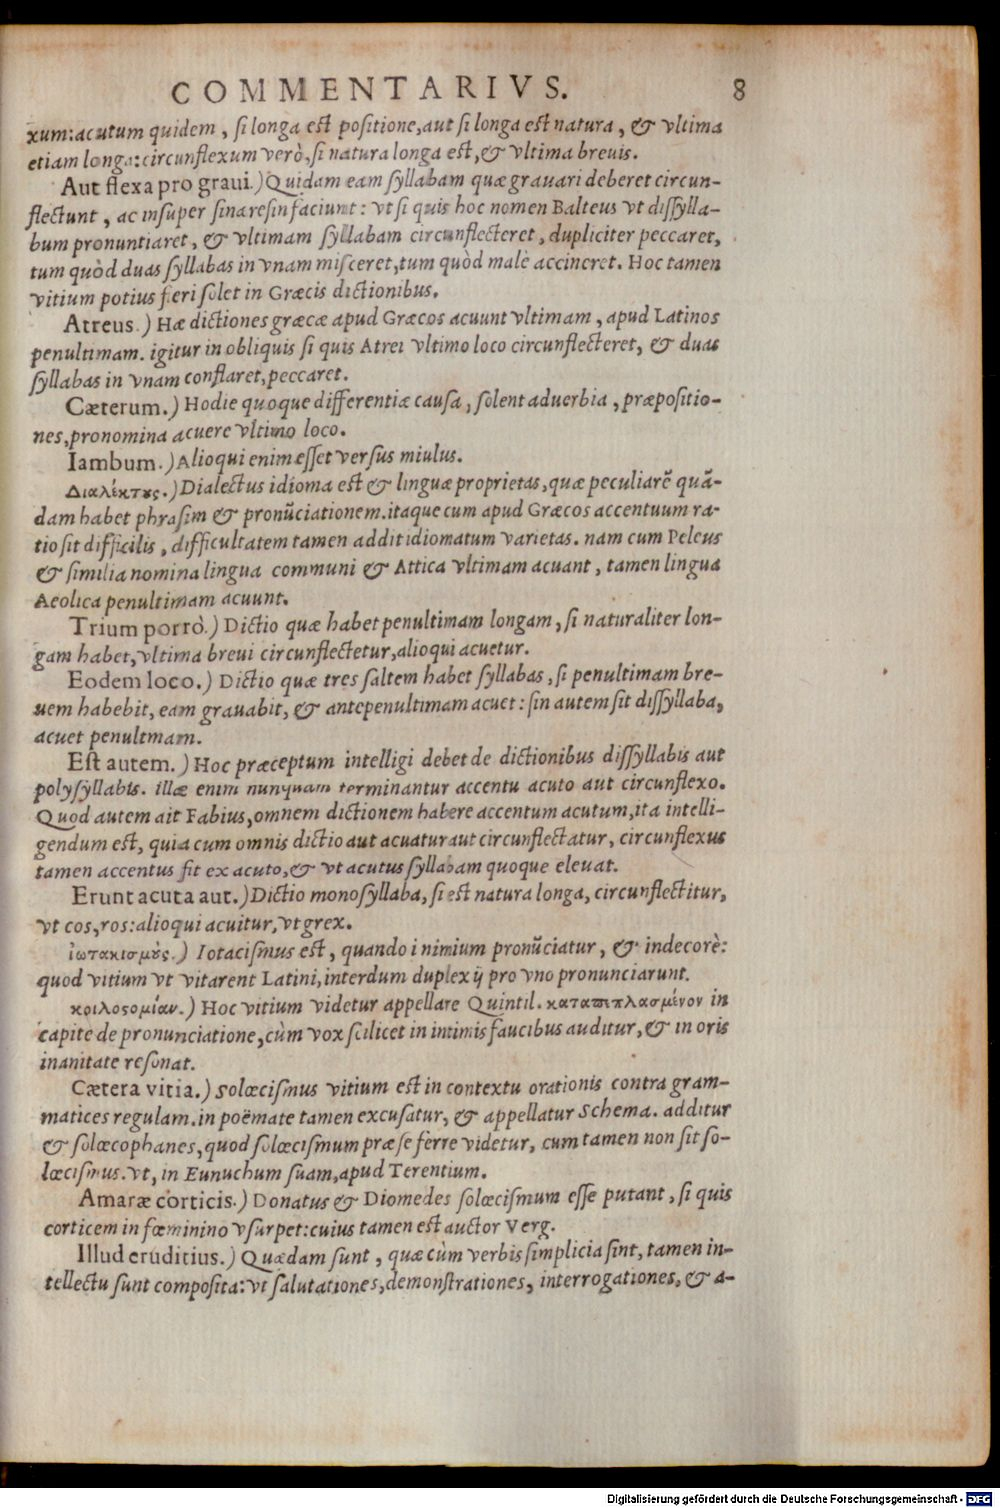 COMMENTARIVS. 8
xum: acutum quidem, si longa est positione, aut si longa est natura, & vltima
etiam longa: circunflexum verò, si natura longa est, & vltima breuis.
Aut flexa pro graui.) Quidam eam syllabam quæ grauari deberet circun-
flectunt, ac insuper sinæresin faciunt: vt si quis hoc nomen Balteus vt dissylla-
bum pronuntiaret, & vltimam syllabam circunflecteret, dupliciter peccaret,
tum quòd duas syllabas in vnam misceret, tum quòd malè accineret. Hoc tamen
vitium potius fieri solet in Græcis dictionibus.
Atreus.) Hæ dictiones græcæ apud Græcos acuunt vltimam, apud Latinos
penultimam. igitur in obliquis si quis Atrei vltimo loco circunflecteret, & duas
syllabas in vnam conflaret, peccaret.
Cæterum.) Hodie quoque differentiæ causa, solent aduerbia, præpositio-
nes, pronomina acuere vltimo loco.
Iambum.) Alioqui enim esset versus miulus.
Διαλέκτους.) Dialectus idioma est & linguæ proprietas, quæ peculiarē quā-
dam habet phrasim & pronūciationem. itaque cum apud Græcos accentuum ra-
tio sit difficilis, difficultatem tamen addit idiomatum varietas. nam cum Peleus
& similia nomina lingua communi & Attica vltimam acuant, tamen lingua
Aeolica penultimam acuunt.
Trium porrò.) Dictio quæ habet penultimam longam, si naturaliter lon-
gam habet, vltima breui circunflectetur, alioqui acuetur.
Eodem loco.) Dictio quæ tres saltem habet syllabas, si penultimam bre-
uem habebit, eam grauabit, & antepenultimam acuet: sin autem sit dissyllaba,
acuet penultmam.
Est autem.) Hoc præceptum intelligi debet de dictionibus dissyllabis aut
polysyllabis. illæ enim nunquam terminantur accentu acuto aut circunflexo.
Quod autem ait Fabius, omnem dictionem habere accentum acutum, ita intelli-
gendum est, quia cum omnis dictio aut acuatur aut circunflectatur, circunflexus
tamen accentus fit ex acuto, & vt acutus syllabam quoque eleuat.
Erunt acuta aut.) Dictio monosyllaba, si est natura longa, circunflectitur,
vt cos, ros: alioqui acuitur, vt grex.
ἰωτακισμούς.) Iotacismus est, quando i nimium pronūciatur, & indecorè:
quod vitium vt vitarent Latini, interdum duplex ij pro vno pronunciarunt.
κοιλοσομίαν.) Hoc vitium videtur appellare Quintil. καταπιπλασμένον in
capite de pronunciatione, cùm vox scilicet in intimis faucibus auditur, & in oris
inanitate resonat.
Cætera vitia.) Solœcismus vitium est in contextu orationis contra gram-
matices regulam. in poëmate tamen excusatur, & appellatur Schema. additur
& solœcophanes, quod solœcismum præ se ferre videtur, cum tamen non sit so-
lœcismus. vt, in Eunuchum suam, apud Terentium.
Amaræ corticis.) Donatus & Diomedes solœcismum esse putant, si quis
corticem in fœminino vsurpet: cuius tamen est auctor Verg.
Illud eruditius.) Quædam sunt, quæ cùm verbis simplicia sint, tamen in-
tellectu sunt composita: vt salutationes, demonstrationes, interrogationes, & a-
Digitalisierung gefördert durch die Deutsche Forschungsgemeinschaft - DFG